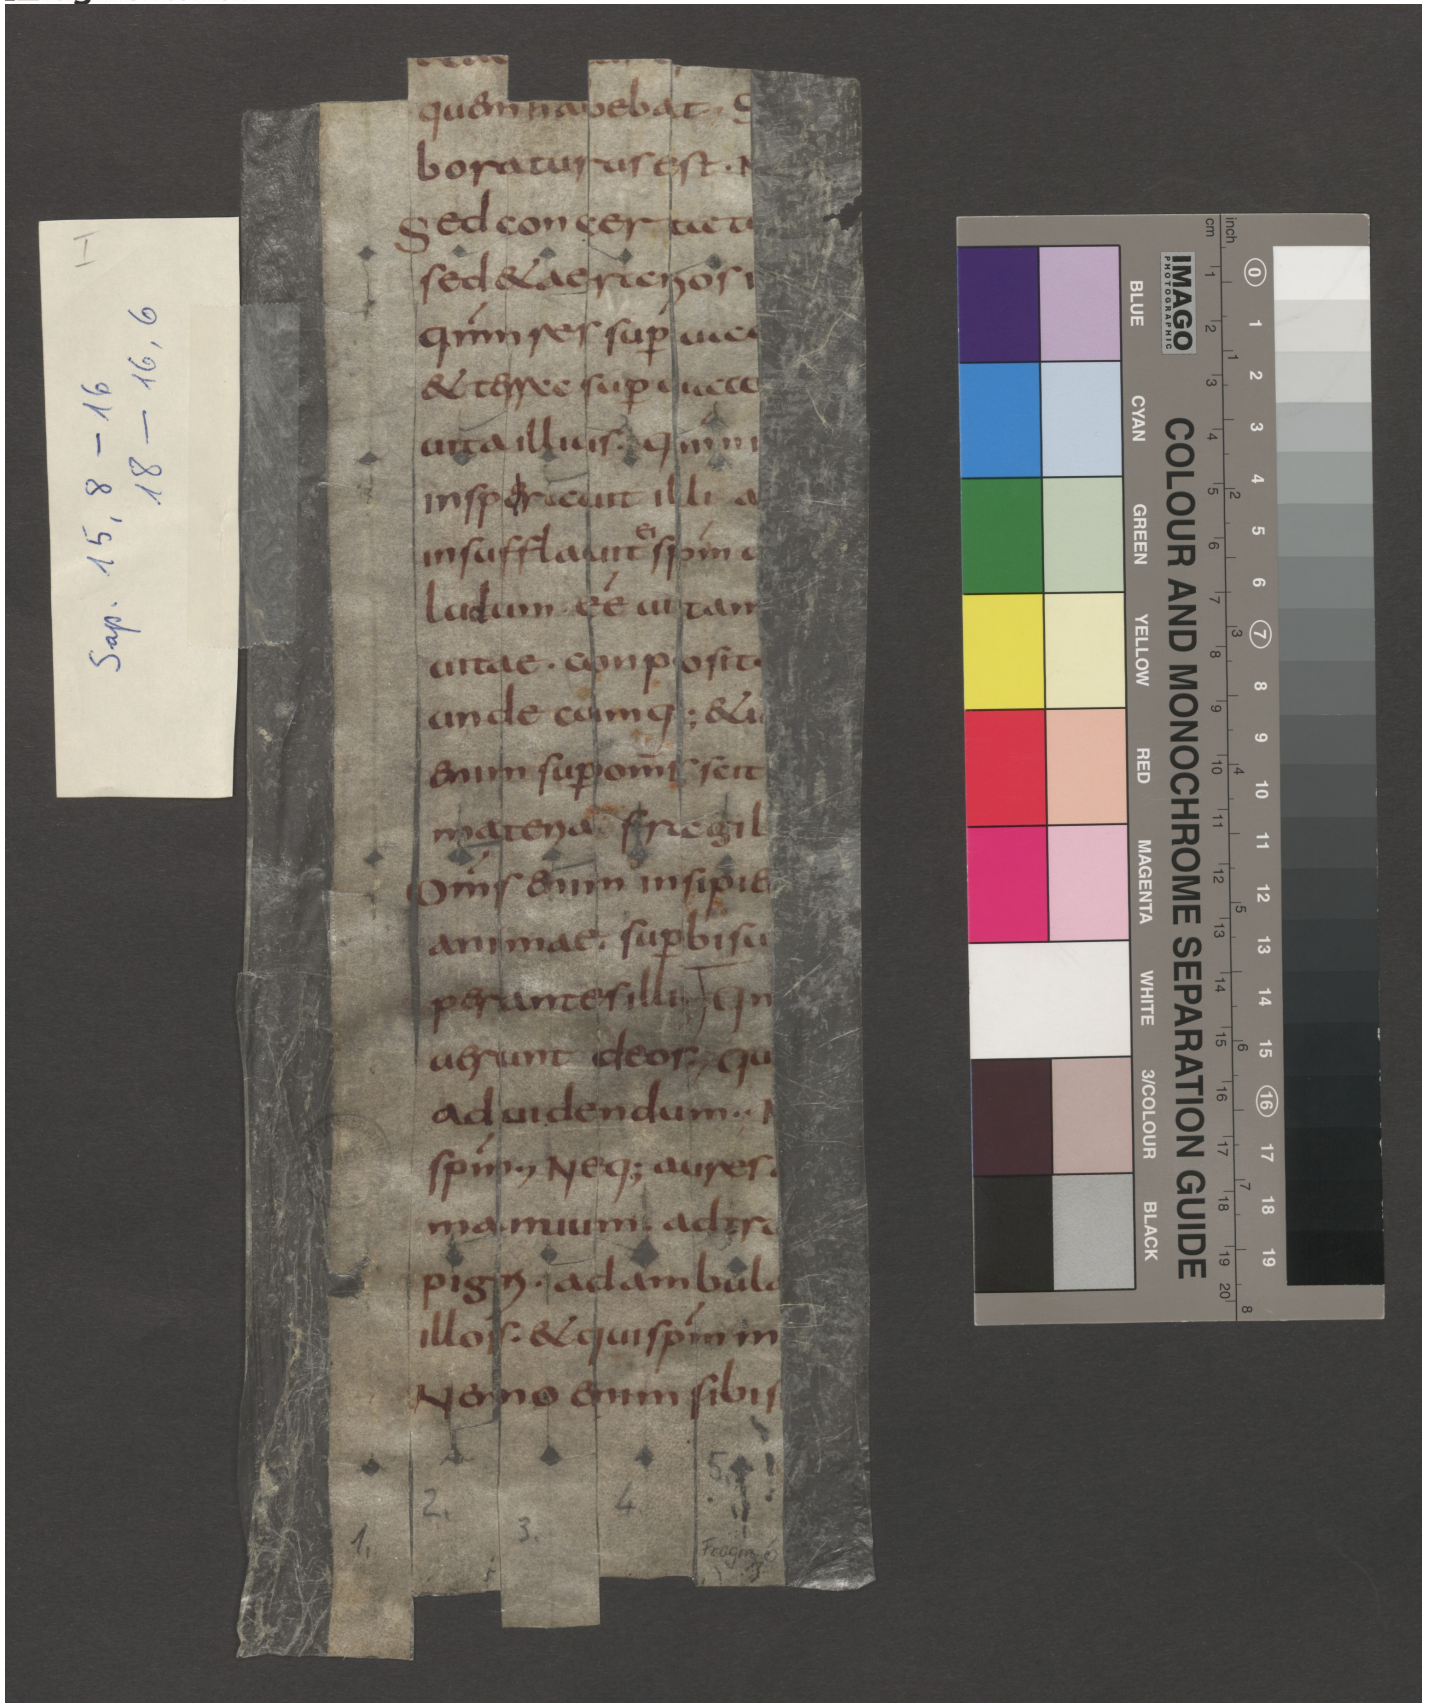 I
Sap. 15, 8 – 16
18 – 16, 6
quem habebat. S
boraturus est. N
Sed concertatu
sed & aerarios i
qnm res sup uac
& terre sup uacu
uita illius. qnm i
inspirauit illi a
insufflauit ei spm u
ludum ee uitam
uitae. composit
unde cumq; & i
enim sup oms scit
materia fragil
Oms enim insipie
animae. supbi su
perantes illi qn
aerunt deos qu
ad uidendum. N
spm. Neq; aures
manuum ad tra
pigri. ad ambula
illos. & qui spm m
Nemo enim sibi s
1.
2.
3.
4.
5.
Fragm.
IMAGO
PHOTOGRAPHIC
COLOUR AND MONOCHROME SEPARATION GUIDE
BLUE
CYAN
GREEN
YELLOW
RED
MAGENTA
WHITE
3/COLOUR
BLACK
cm 1 2 3 4 5 6 7 8 9 10 11 12 13 14 15 16 17 18 19 20
inch 1 2 3 4 5 6 7 8
0 1 2 3 4 5 6 7 8 9 10 11 12 13 14 15 16 17 18 19